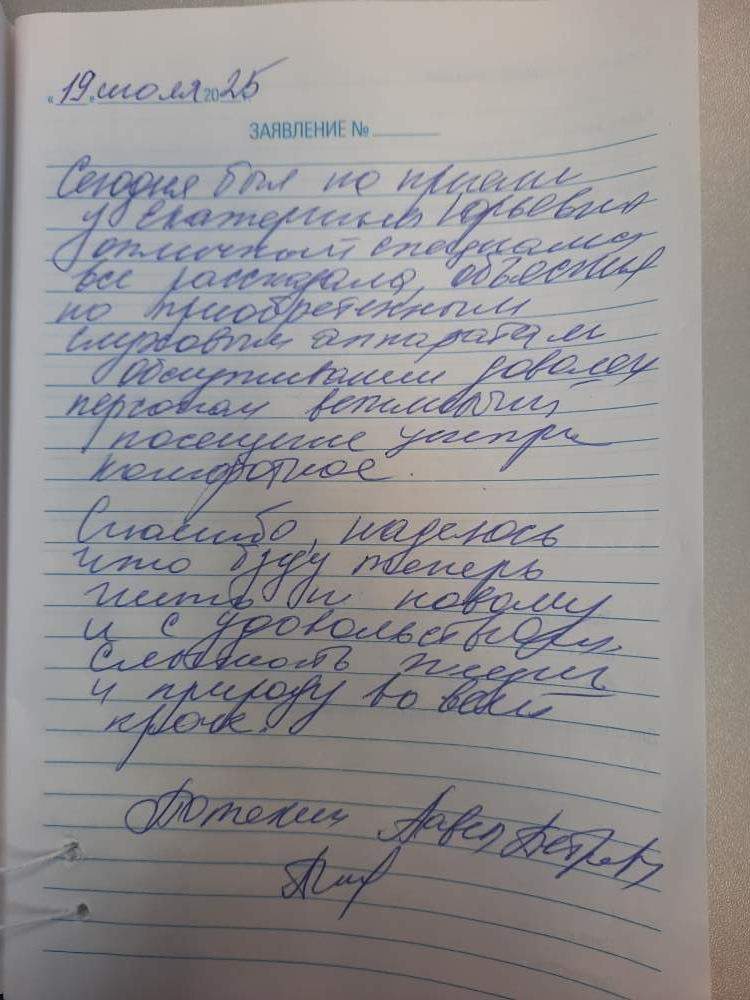 «19» июля 2025
ЗАЯВЛЕНИЕ №
Сегодня был на приеме
у Екатерины Юрьевны
отличный специалист
все рассказала, объяснила
по приобретенным
слуховым аппаратам
Обслуживанием доволен
персонал вежливый
посещение
комфортное.
Спасибо, надеюсь
что буду теперь
жить по новому
и с удовольствием
слышать жизнь
и природу во всей
красе.
Потехин Павел Петрович